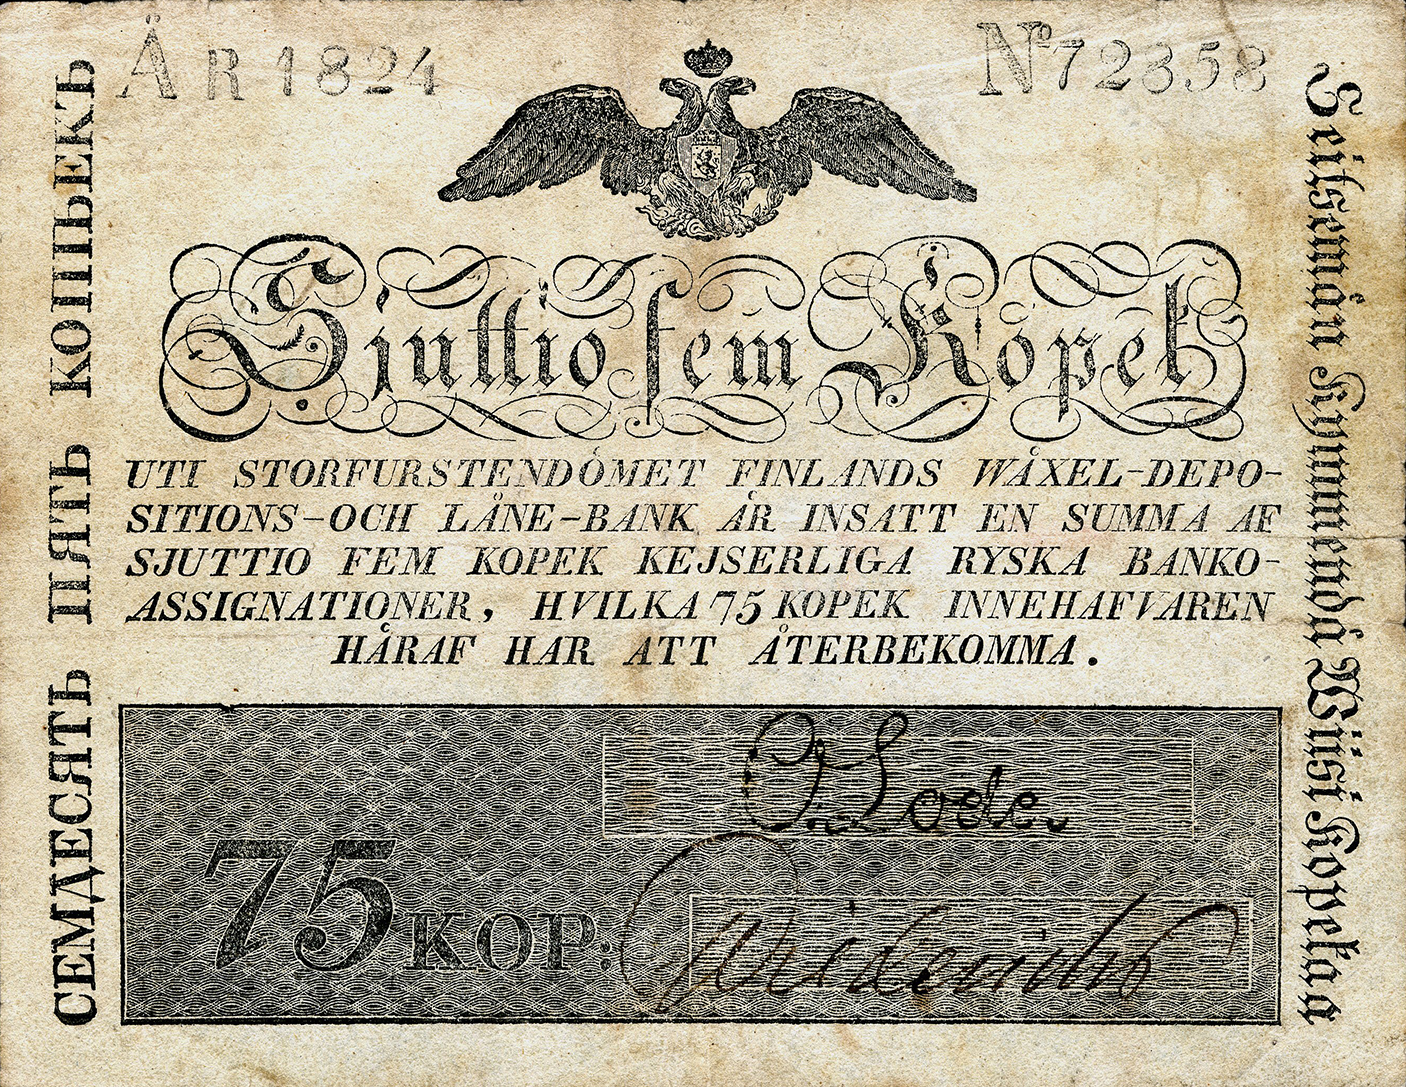 ÅR 1824
No 72358
СЕМДЕСЯТЬ ПЯТЬ КОПѢЕКЪ
Sjuttio fem Kopek
UTI STORFURSTENDÖMET FINLANDS WÄXEL-DEPO-
SITIONS-OCH LÅNE-BANK ÄR INSATT EN SUMMA AF
SJUTTIO FEM KOPEK KEJSERLIGA RYSKA BANKO-
ASSIGNATIONER, HVILKA 75 KOPEK INNEHAFVAREN
HÄRAF HAR ATT ÅTERBEKOMMA.
Seitsemän Kymmendä Wiisi Kopekaa
75 KOP: